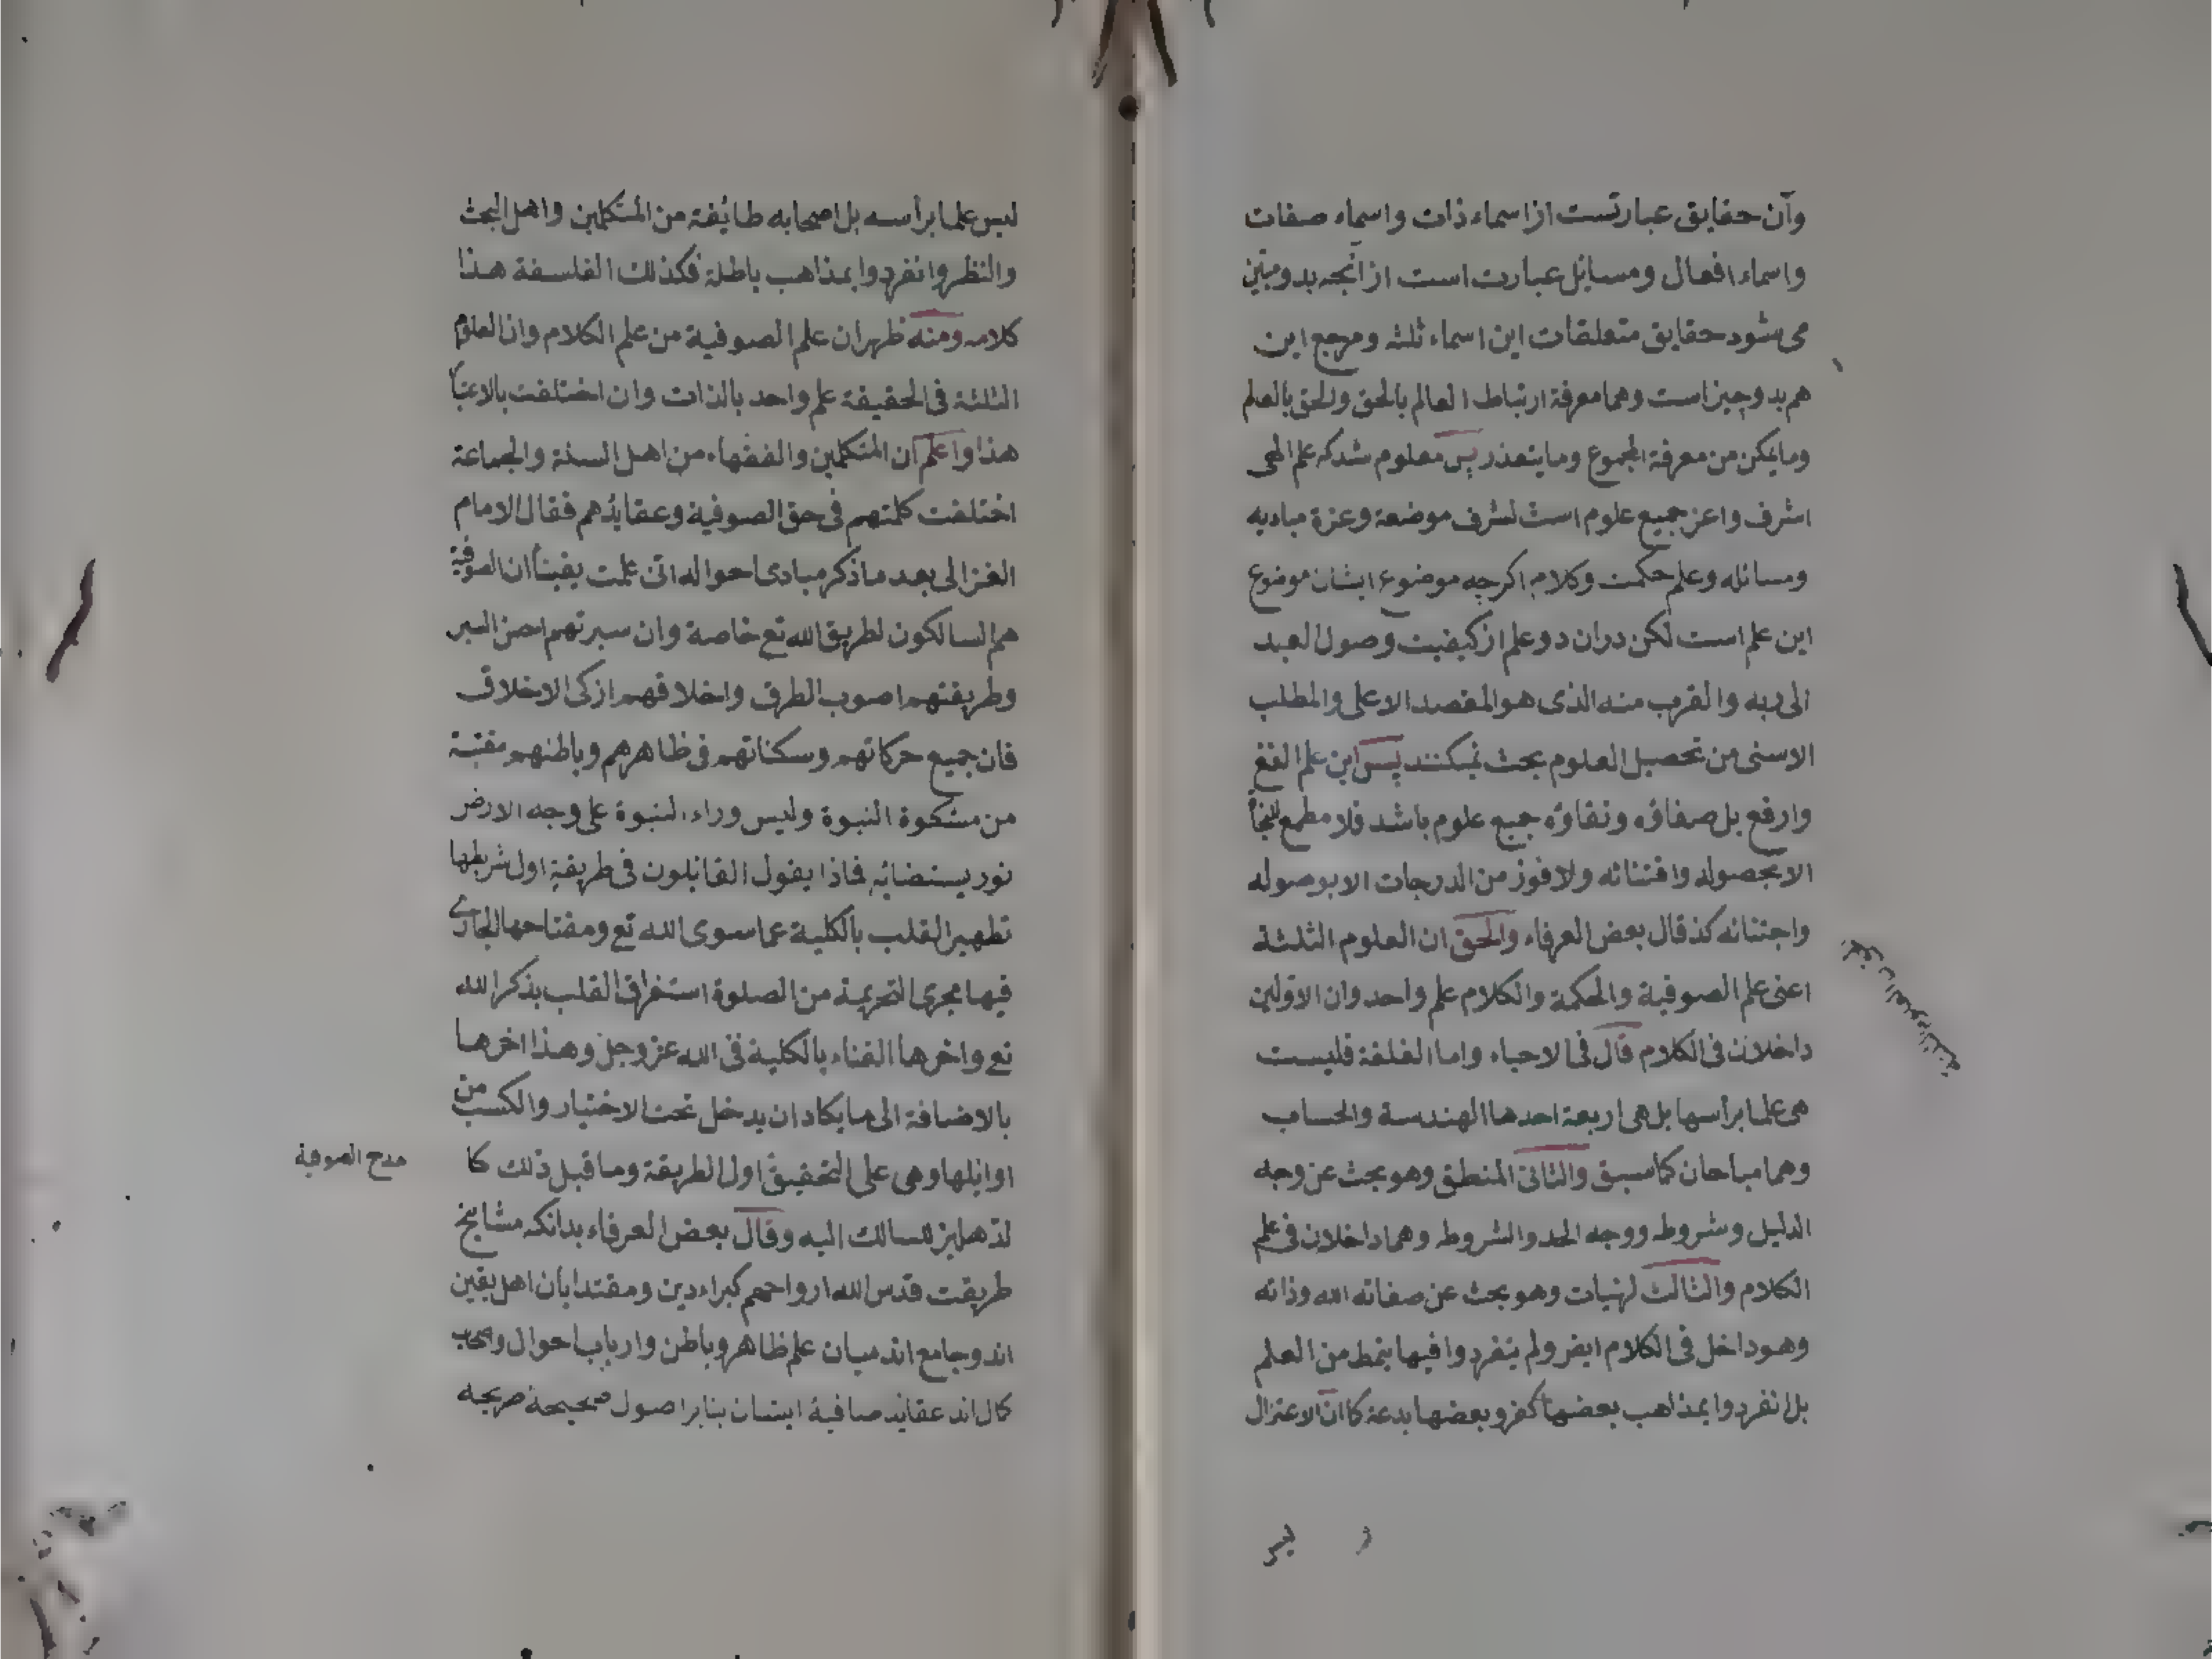 وآن حقایق عبارتست از اسماء ذات واسماء صفات
واسماء افعال ومسایل عبارت است از آنچه بدو مبتین
می شود حقایق متعلقات این اسماء ثلثه ومرجع این
هم بدو چیز است وهما معرفة ارتباط العالم بالحق والحق بالعلم
وما یمکن من معرفة المجموع وما یتعذر پس معلوم شد که علم الهی
اشرف واعز جمیع علوم است لشرف موضعة وعزة مبادیه
ومسائله وعلم حکمت وکلام اکرچه موضوع ایشان موضوع
این علم است لکن دران دو علم از کیفیت وصول العبد
الی ربه والقرب منه الذی هو المقصد الاعلی والمطلب
الاسنی من تحصیل العلوم بحث نمیکنند پس این علم انفع
وارفع بل صفاؤه ونقاؤه جمیع علوم باشد فلا مطمع للنجاة
الا بحصوله واقتنائه ولا فوز من الدرجات الا بوصوله
واجتنائه کذ قال بعض العرفاء والحق ان العلوم الثلثة
اعنی علم الصوفیة والحکمة والکلام علم واحد وان الاولین
داخلان فی الکلام قال فی الاحیاء واما الفلفة فلیست
هی علما برأسها بل هی اربعة احدها الهندسة والحساب
وهما مباحان کما سبق والثانی المنطق وهو بحث عن وجه
الدلیل وشروطه ووجه الحد والشروطه وهما داخلان فی علم
الکلام والثالث لهیات وهو بحث عن صفاته الله وذاته
وهو داخل فی الکلام ایض ولم ینفردوا فیها بنمط من العلم
بل انفردوا بمذاهب بعضها کفر وبعضها بدعة کما ان الاعتزال
لیس علما برأسه بل اصحابه طائفة من المتکلمین واهل البحث
والنظر وانفردوا بمذاهب باطلة فکذلك الفلاسفة هذا
کلامه ومنه ظهر ان علم الصوفیة من علم الکلام وان العلوم
الثلثة فی الحقیقة علم واحد بالذات وان اختلفت بالاعتبا
هذا واعلم ان المتکلمین والفقهاء من اهل السنة والجماعة
اختلفت کلمتهم فی حق الصوفیة وعقایدهم فقال الامام
الغزالی بعد ما ذکر مبادی احواله انی علمت یقینا ان الصوفیة
هم السالکون لطریق الله تع خاصة وان سیرتهم احسن السیر
وطریقتهم اصوب الطرق واخلاقهم ازکی الاخلاق
فان جمیع حرکاتهم وسکناتهم فی ظاهرهم وباطنهم مقتبسة
من مشکوة النبوة ولیس وراء النبوة علی وجه الارض
نور یستضائ به فماذا یقول القائلون فی طریقة اول شرطها
تطهیر القلب بالکلیة عما سوی الله تع ومفتاحها الجاری
فیها مجری التحریمة من الصلوة استغراق القلب بذکر الله
تع واخرها الفناء بالکلیة فی الله عز وجل وهذا اخرها
بالاضافة الی ما یکاد ان یدخل تحت الاختیار والکسب من
اوائلها وهی علی التحقیق اول الطریقة وما قبل ذلك کا
لدهلیز للسالك الیه وقال بعض العرفاء بدانکه مشایخ
طریقت قدس الله ارواحهم کبراء دین ومقتدایان اهل یقین
اند وجامع اند میان علم ظاهر وباطن وارباب احوال واصحاب
کمال اند عقاید صافیة ایشان بنابر اصول صحیحة صریحه
مدح الصوفیة